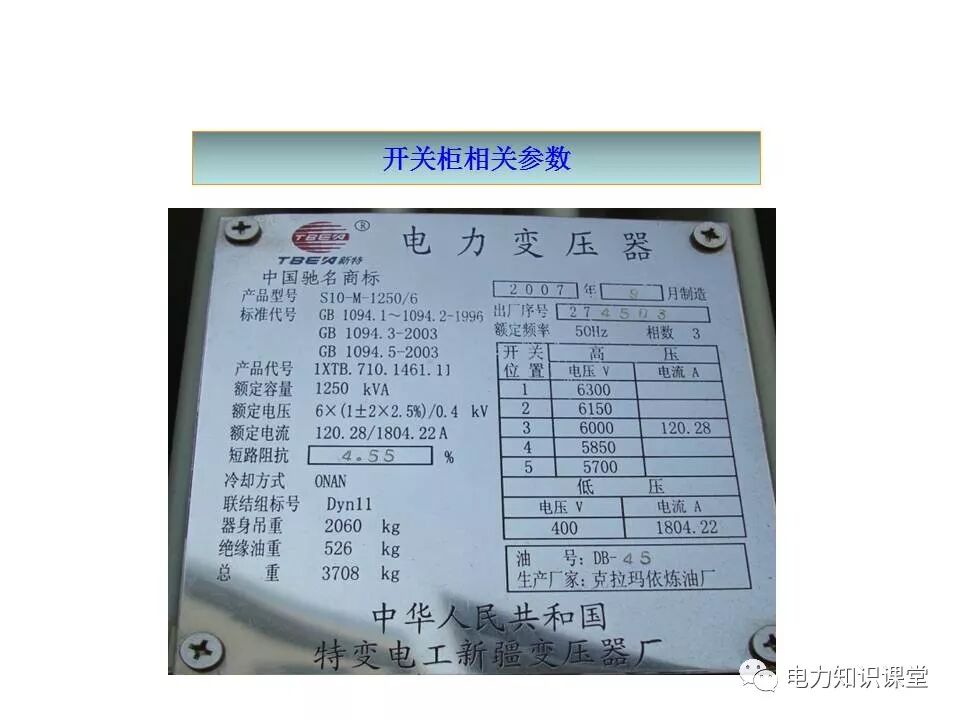 开关柜相关参数
TBEA ®
TBEA新特
电力变压器
中国驰名商标
产品型号 S10-M-1250/6
2007年 9月制造
标准代号 GB 1094.1~1094.2-1996
GB 1094.3-2003
GB 1094.5-2003
出厂序号 274503
额定频率 50Hz 相数 3
产品代号 1XTB.710.1461.11
额定容量 1250 kVA
额定电压 6×(1±2×2.5%)/0.4 kV
额定电流 120.28/1804.22A
短路阻抗 4.55 %
冷却方式 ONAN
联结组标号 Dyn11
器身吊重 2060 kg
绝缘油重 526 kg
总重 3708 kg
开关位置 高压
电压 V 电流 A
1 6300
2 6150
3 6000 120.28
4 5850
5 5700
低压
电压 V 电流 A
400 1804.22
油号:DB-45
生产厂家:克拉玛依炼油厂
中华人民共和国
特变电工新疆变压器厂
电力知识课堂